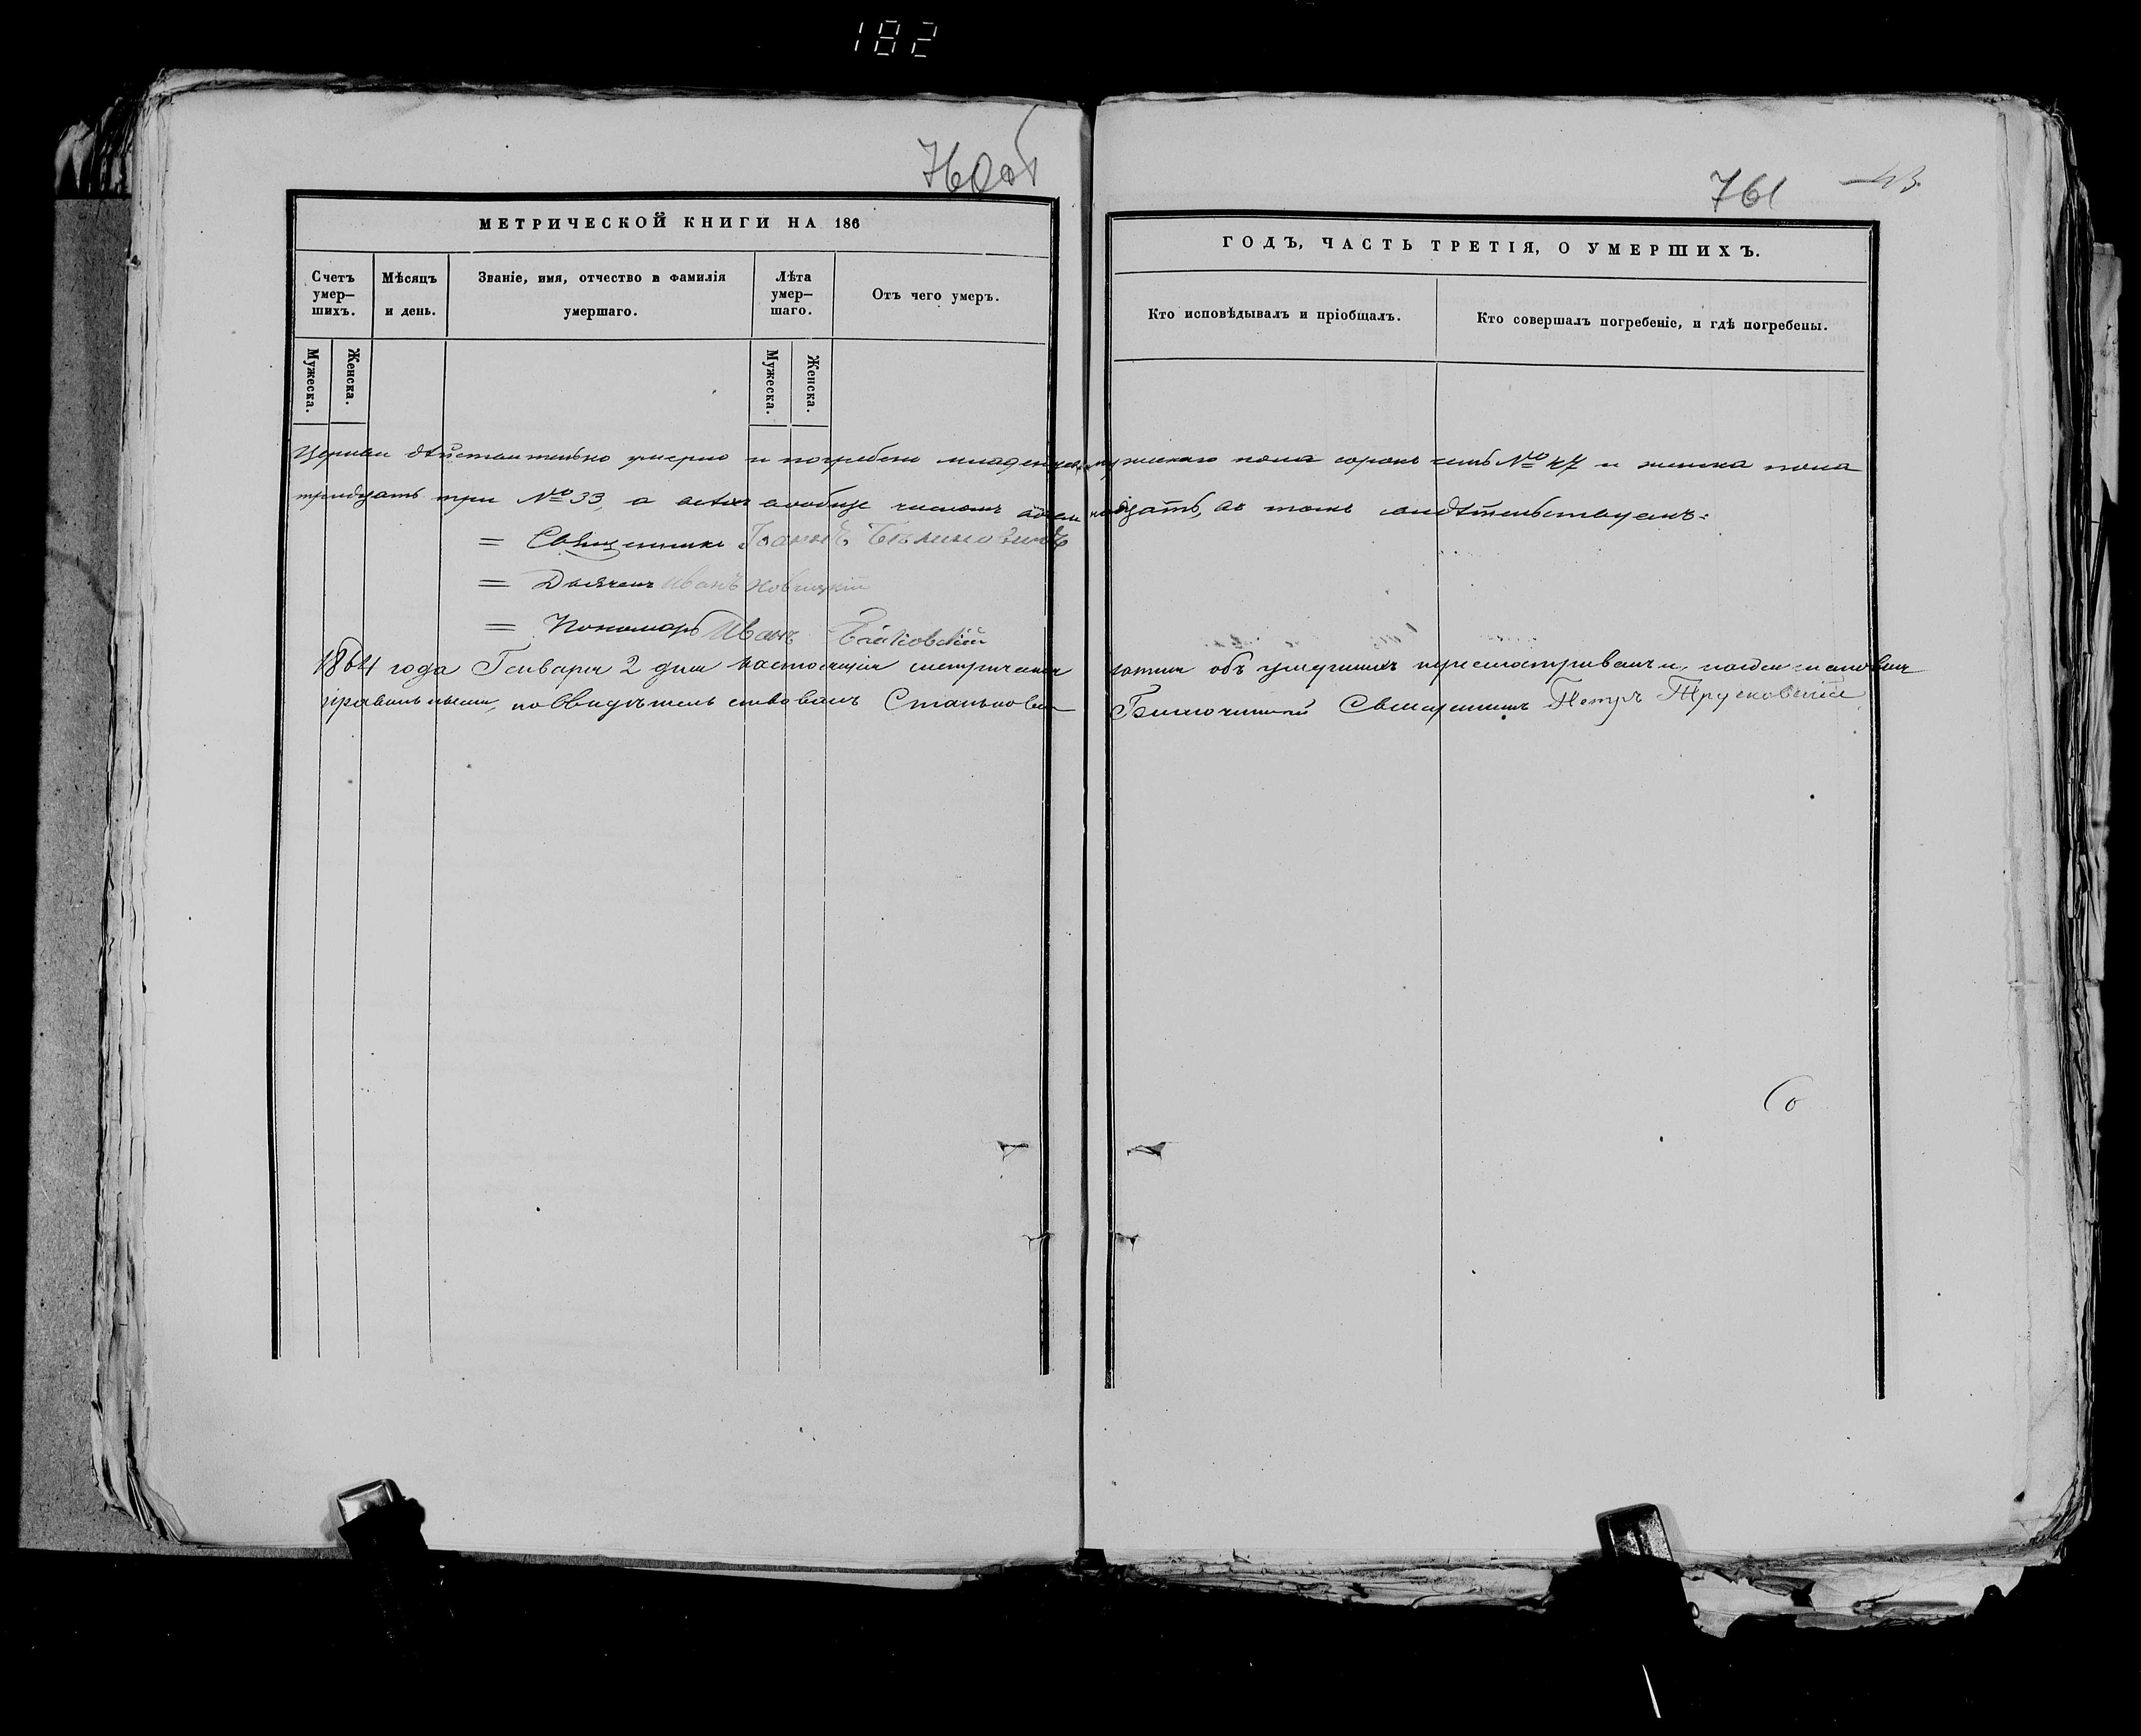 182
760об
МЕТРИЧЕСКОЙ КНИГИ НА 186
Счетъ умер-шихъ.
Мѣсяцъ и день.
Званіе, имя, отчество и фамилія умершаго.
Лѣта умер-шаго.
Отъ чего умеръ.
Мужеска.
Женска.
Мужеска.
Женска.
761
43
ГОДЪ, ЧАСТЬ ТРЕТІЯ, О УМЕРШИХЪ.
Кто исповѣдывалъ и пріобщалъ.
Кто совершалъ погребеніе, и гдѣ погребены.
Церкви дѣйствительно умерло и погребено младенцевъ мужеска пола сорокъ семь № 47 и женска пола
тридцать три № 33, а всѣхъ вообще числомъ восемьдесятъ, въ томъ свидѣтельствуемъ:
= Священникъ Іоаннъ
= Дьячекъ Иванъ Новицкій
= Пономарь Иванъ
1864 года Генваря 2 дня настоящія метрическія объ умершихъ пересматривалъ и
правильными, освидѣтельствовалъ Благочинный Священникъ Петръ